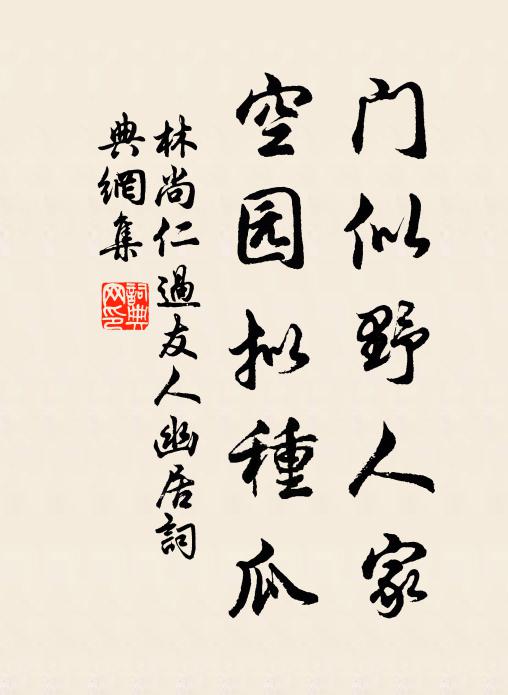 门似野人家
空园拟種瓜
林尚仁過友人幽居詞
典網集
詞典网印